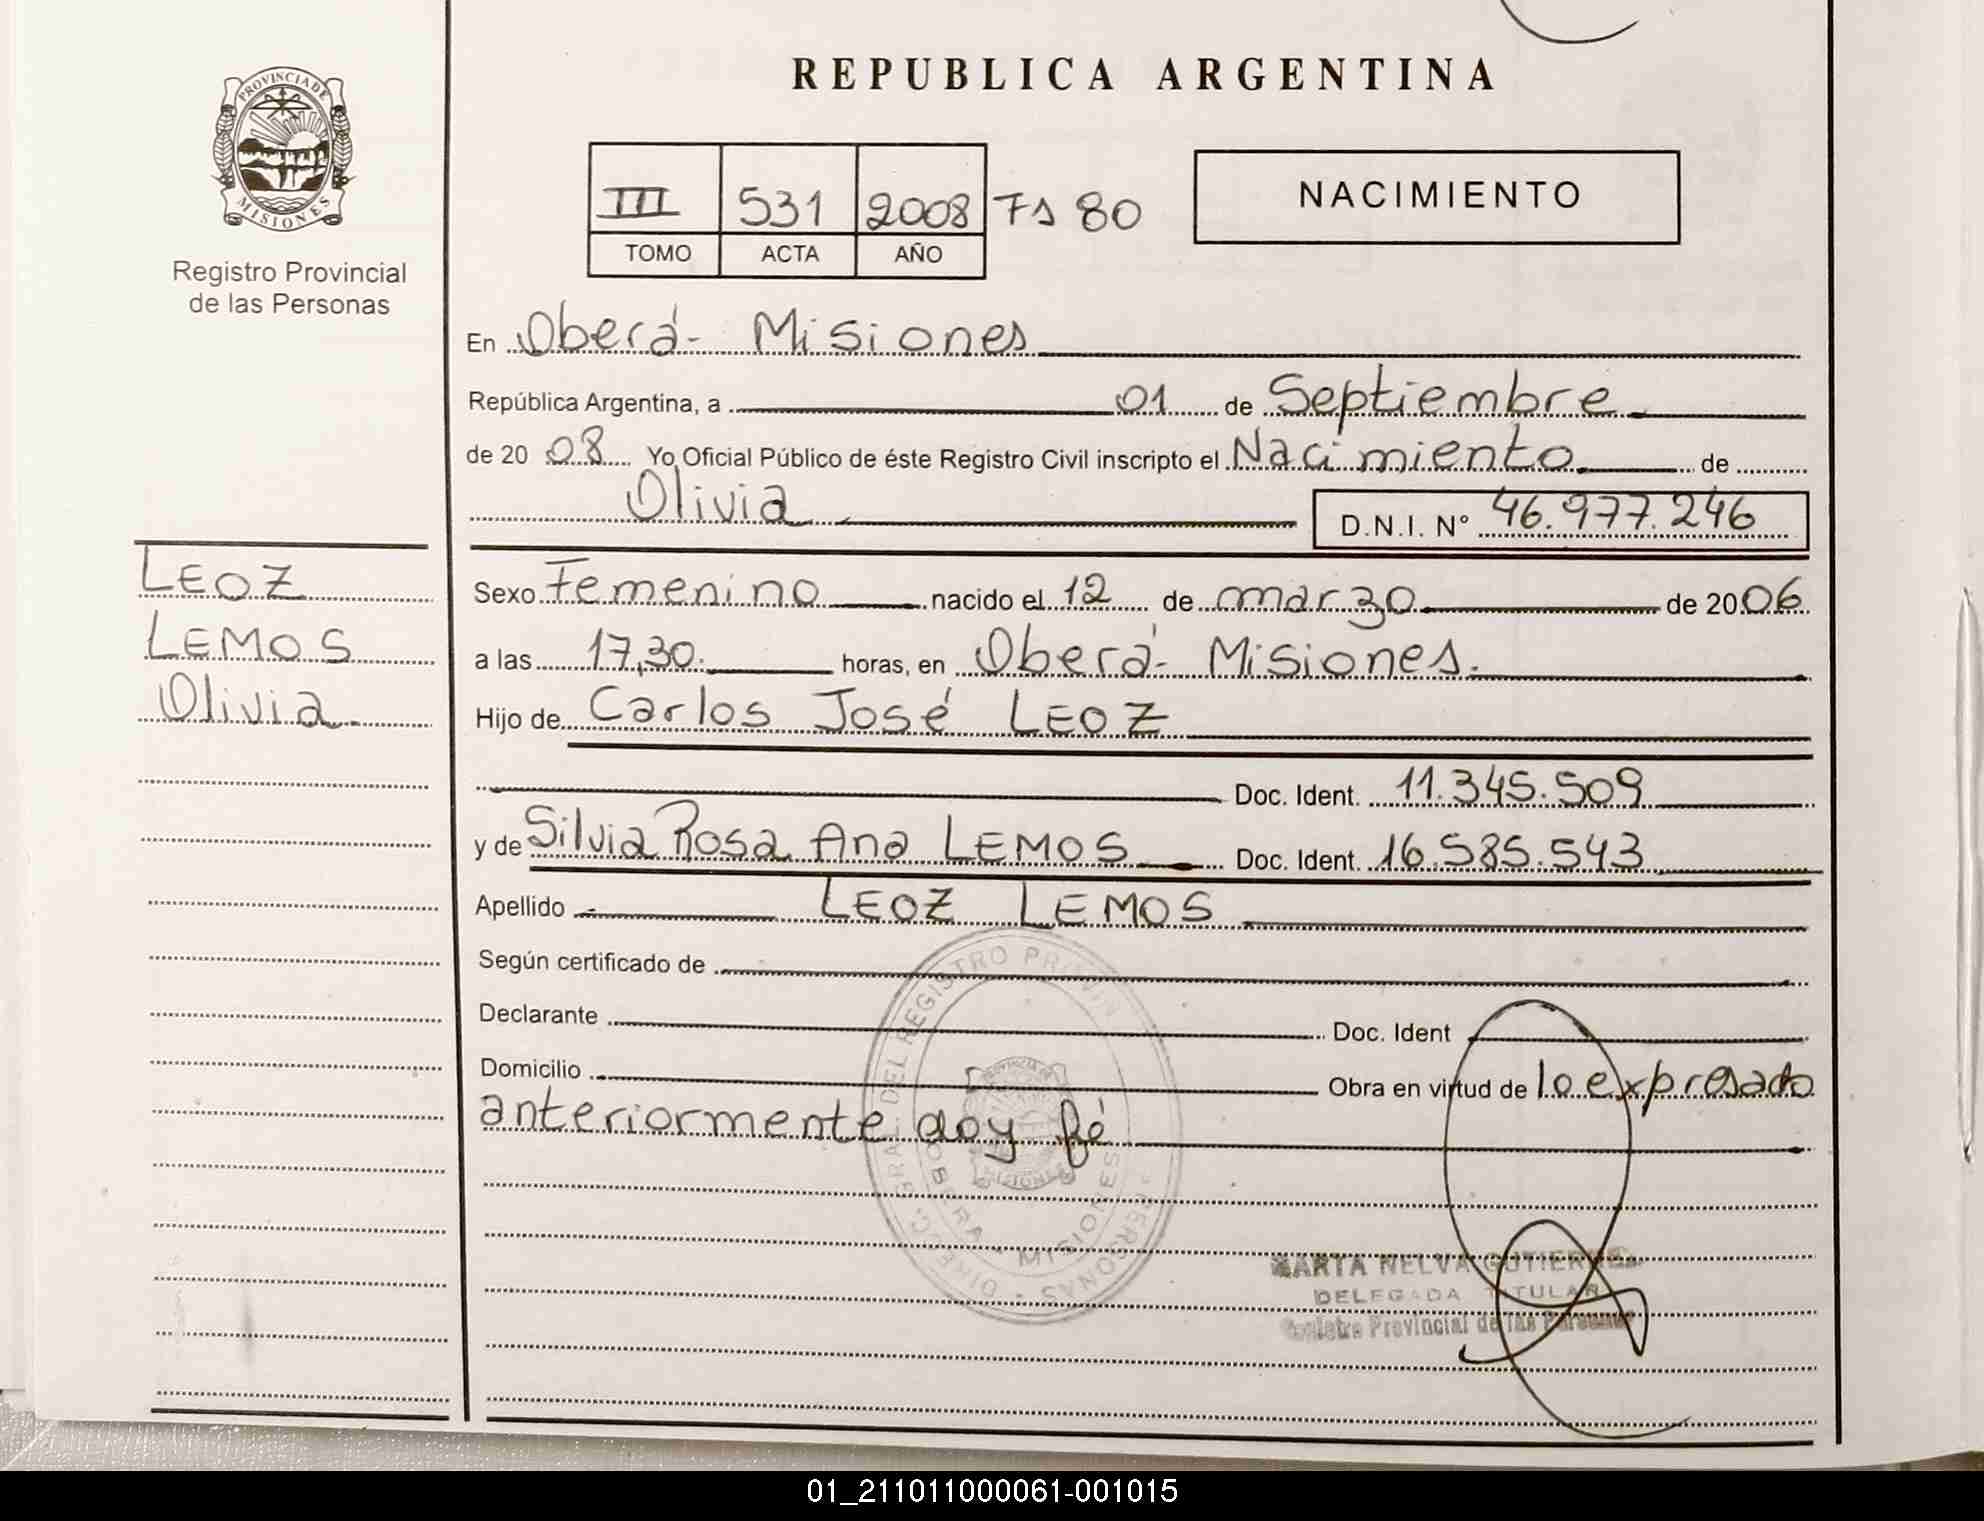 PROVINCIA DE
MISIONES
Registro Provincial
de las Personas
REPUBLICA ARGENTINA
III 531 2008 Fs 80
TOMO ACTA AÑO
NACIMIENTO
En Oberá- Misiones
República Argentina, a 01 de Septiembre
de 20 08 Yo Oficial Público de éste Registro Civil inscripto el Nacimiento de
Olivia
D.N.I. N° 46.977.246
LEOZ
LEMOS
Olivia.
Sexo Femenino nacido el 12 de marzo de 2006
a las 17,30. horas, en Oberá- Misiones.
Hijo de Carlos José LEOZ
Doc. Ident. 11.345.509
y de Silvia Rosa Ana LEMOS Doc. Ident. 16.585.543
Apellido LEOZ LEMOS
Según certificado de
Declarante Doc. Ident
Domicilio Obra en virtud de lo expresado
anteriormente doy fé
DIRECC. GRAL. DEL REGISTRO PROVIN PERSONAS
OBERA - MISIONES
MARTA NELVA
DELEGADA TITULAR
Registro Provincial de las Personas
01_211011000061-001015